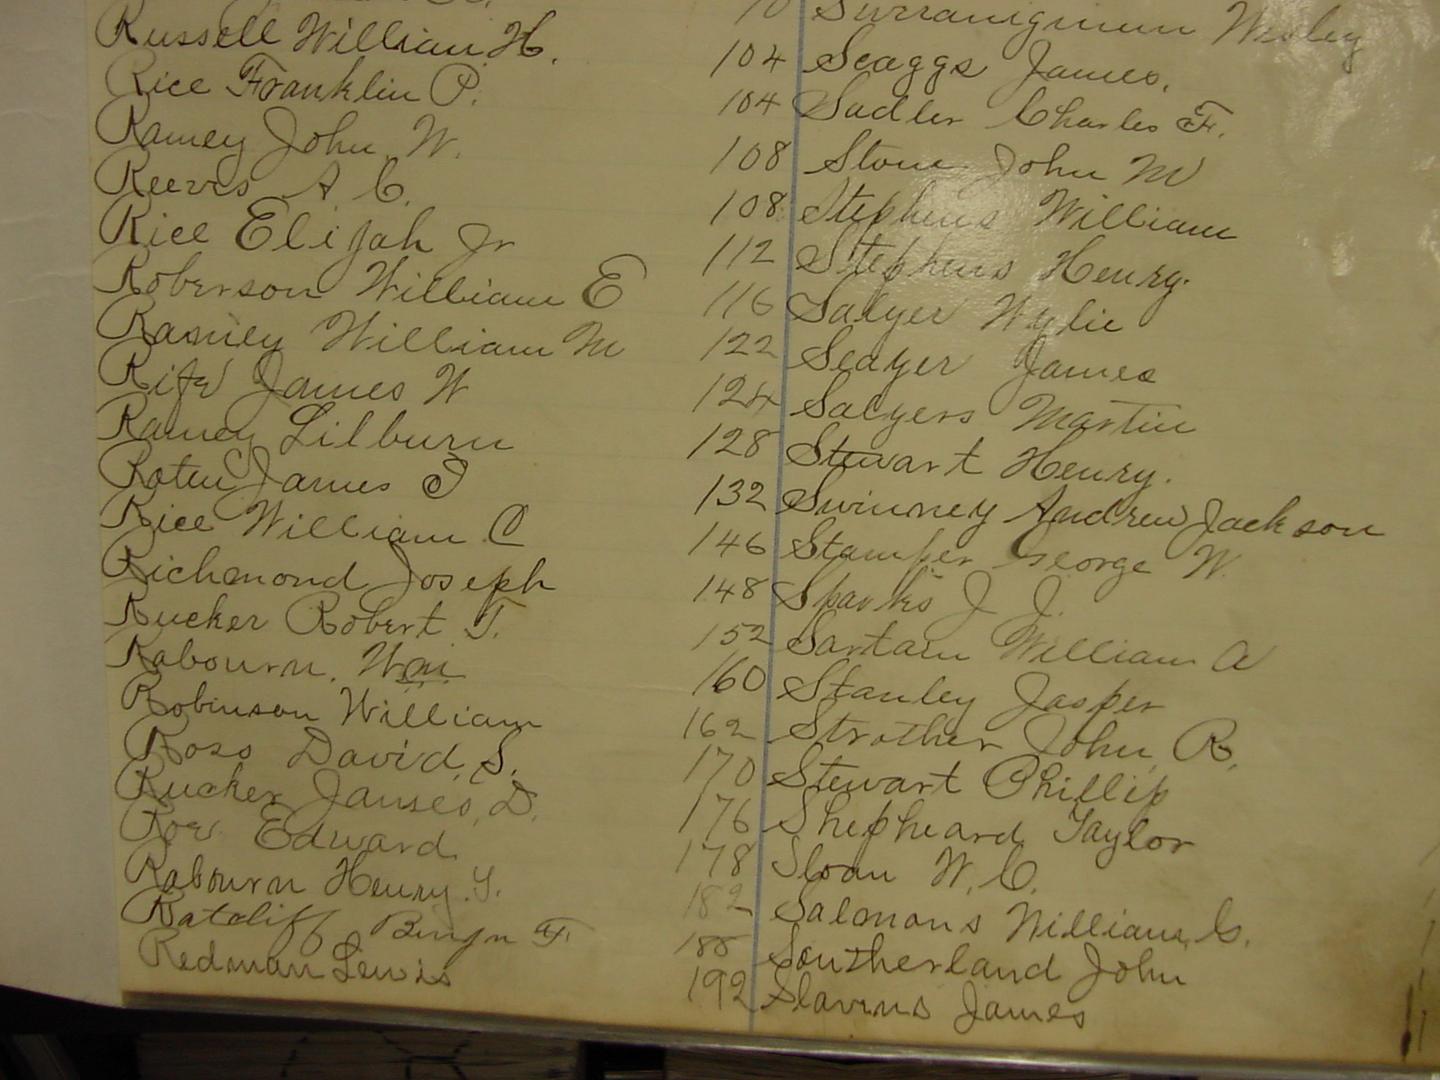 Russell William H.
Rice Franklin P. 104
Ramey John W. 104
Reeves A C. 108
Rice Elijah Jr 108
Roberson William E 112
Ramey William M 116
Rife James W 122
Ramey Lilburn 124
Roten James J 128
Rice William C 132
Richmond Joseph 146
Rucker Robert T. 148
Rabourn. Wm. 152
Robinson William 160
Ross David. S. 162
Rucker James, D. 170
Roe Edward 176
Rabourn Henry. 178
Ratcliff Benjn F. 182
Redman Lewis 188
192
Wesley
Scaggs James.
Sadler Charles F.
Stone John M
Stephens William
Stephens Henry.
Salyer Wylie
Seager James
Salyers Martin
Stewart Henry.
Swinney Andrew Jackson
Stamper George W.
Sparks J J.
Sartain William A
Stanley Jasper
Strother John R.
Stewart Phillip
Shepheard Taylor
Sloan W. C.
Salmons William, C.
Southerland John
Slavens James